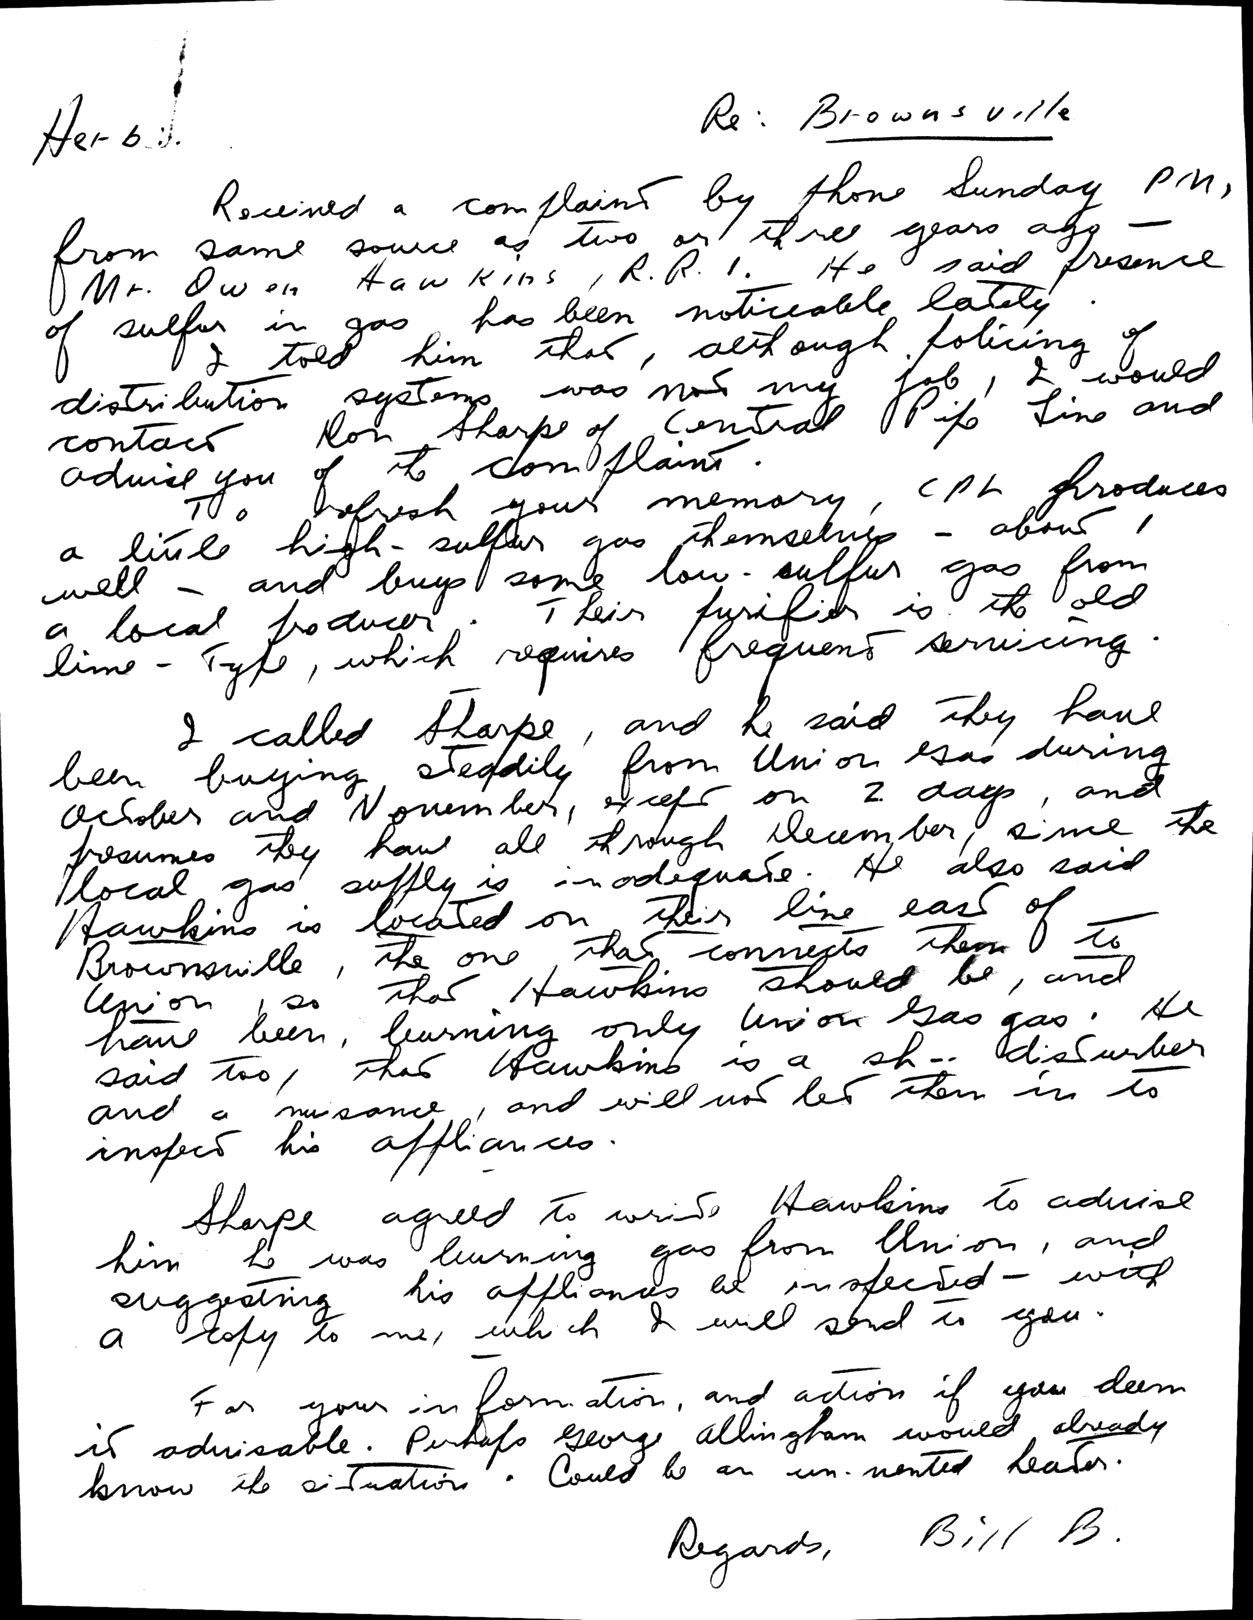 Re: Brownsville
Herb:
Received a complaint by phone Sunday P.M.,
from same source as two or three years ago —
Mr. Owen Hawkins, R.R. 1. He said presence
of sulfur in gas has been noticeable lately.
I told him that, although policing of
distribution systems was not my job, I would
contact Ron Sharpe of Central Pipe Line and
advise you of the complaint.
To refresh your memory, CPL produces
a little high-sulfur gas themselves - about 1
well - and buys some low-sulfur gas from
a local producer. Their purifier is the old
lime-type, which requires frequent servicing.
I called Sharpe, and he said they have
been buying steadily from Union Gas during
October and November, except on 2 days, and
presumes they have all through December, since the
local gas supply is inadequate. He also said
Hawkins is located on their line east of
Brownsville, the one that connects them to
Union, so that Hawkins should be, and
have been, burning only Union Gas gas. He
said too, that Hawkins is a sh-- disturber
and a nuisance, and will not let them in to
inspect his appliances.
Sharpe agreed to write Hawkins to advise
him he was burning gas from Union, and
suggesting his appliances be inspected - with
a copy to me, which I will send to you.
For your information, and action if you deem
it advisable. Perhaps George Allingham would already
know the situation. Could be an un-vented heater.
Regards, Bill B.